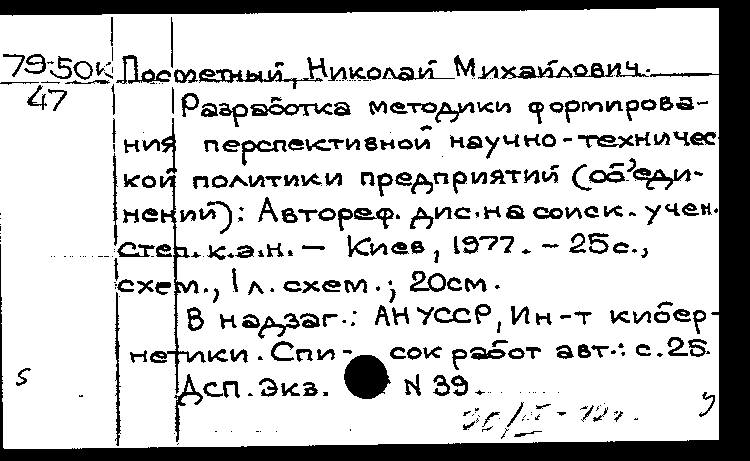 79-50к Посметный, Николай Михайлович.
47
Разработка методики формирова-
ния перспективной научно-техничес
кой политики предприятий (объеди-
нений): Автореф. дис. на соиск. учен.
степ. к.э.н. – Киев, 1977. – 25с.,
схем., 1 л. схем.; 20см.
В надзаг.: АН УССР, Ин-т кибер-
нетики. Спи- сок работ авт.: с.25.
s Дсп. Экз. N 39.